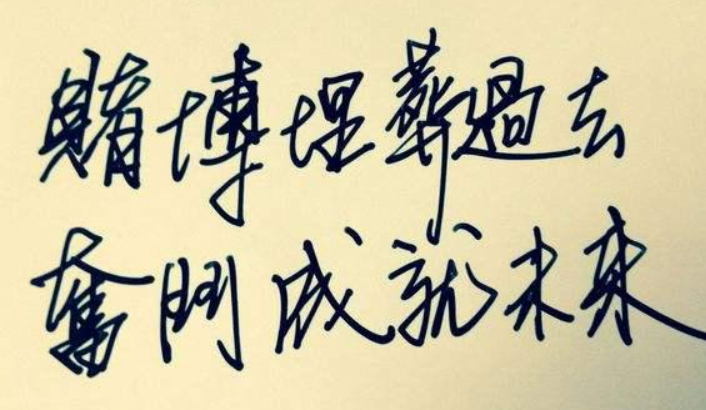 賭博埋葬過去
奮鬥成就未来